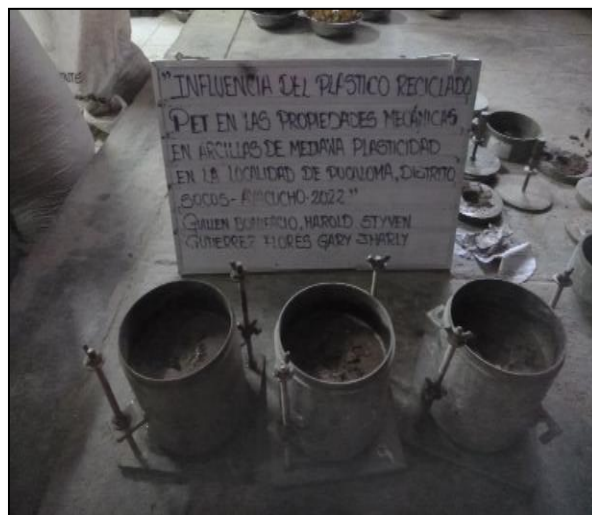 "INFLUENCIA DEL PLÁSTICO RECICLADO
PET EN LAS PROPIEDADES MECÁNICAS
EN ARCILLAS DE MEDIANA PLASTICIDAD
EN LA LOCALIDAD DE PUCALOMA, DISTRITO
SOCOS - AYACUCHO - 2022"
GUILLEN BONIFACIO, HAROLD STYVEN
GUTIERREZ FLORES GARY JHARLY